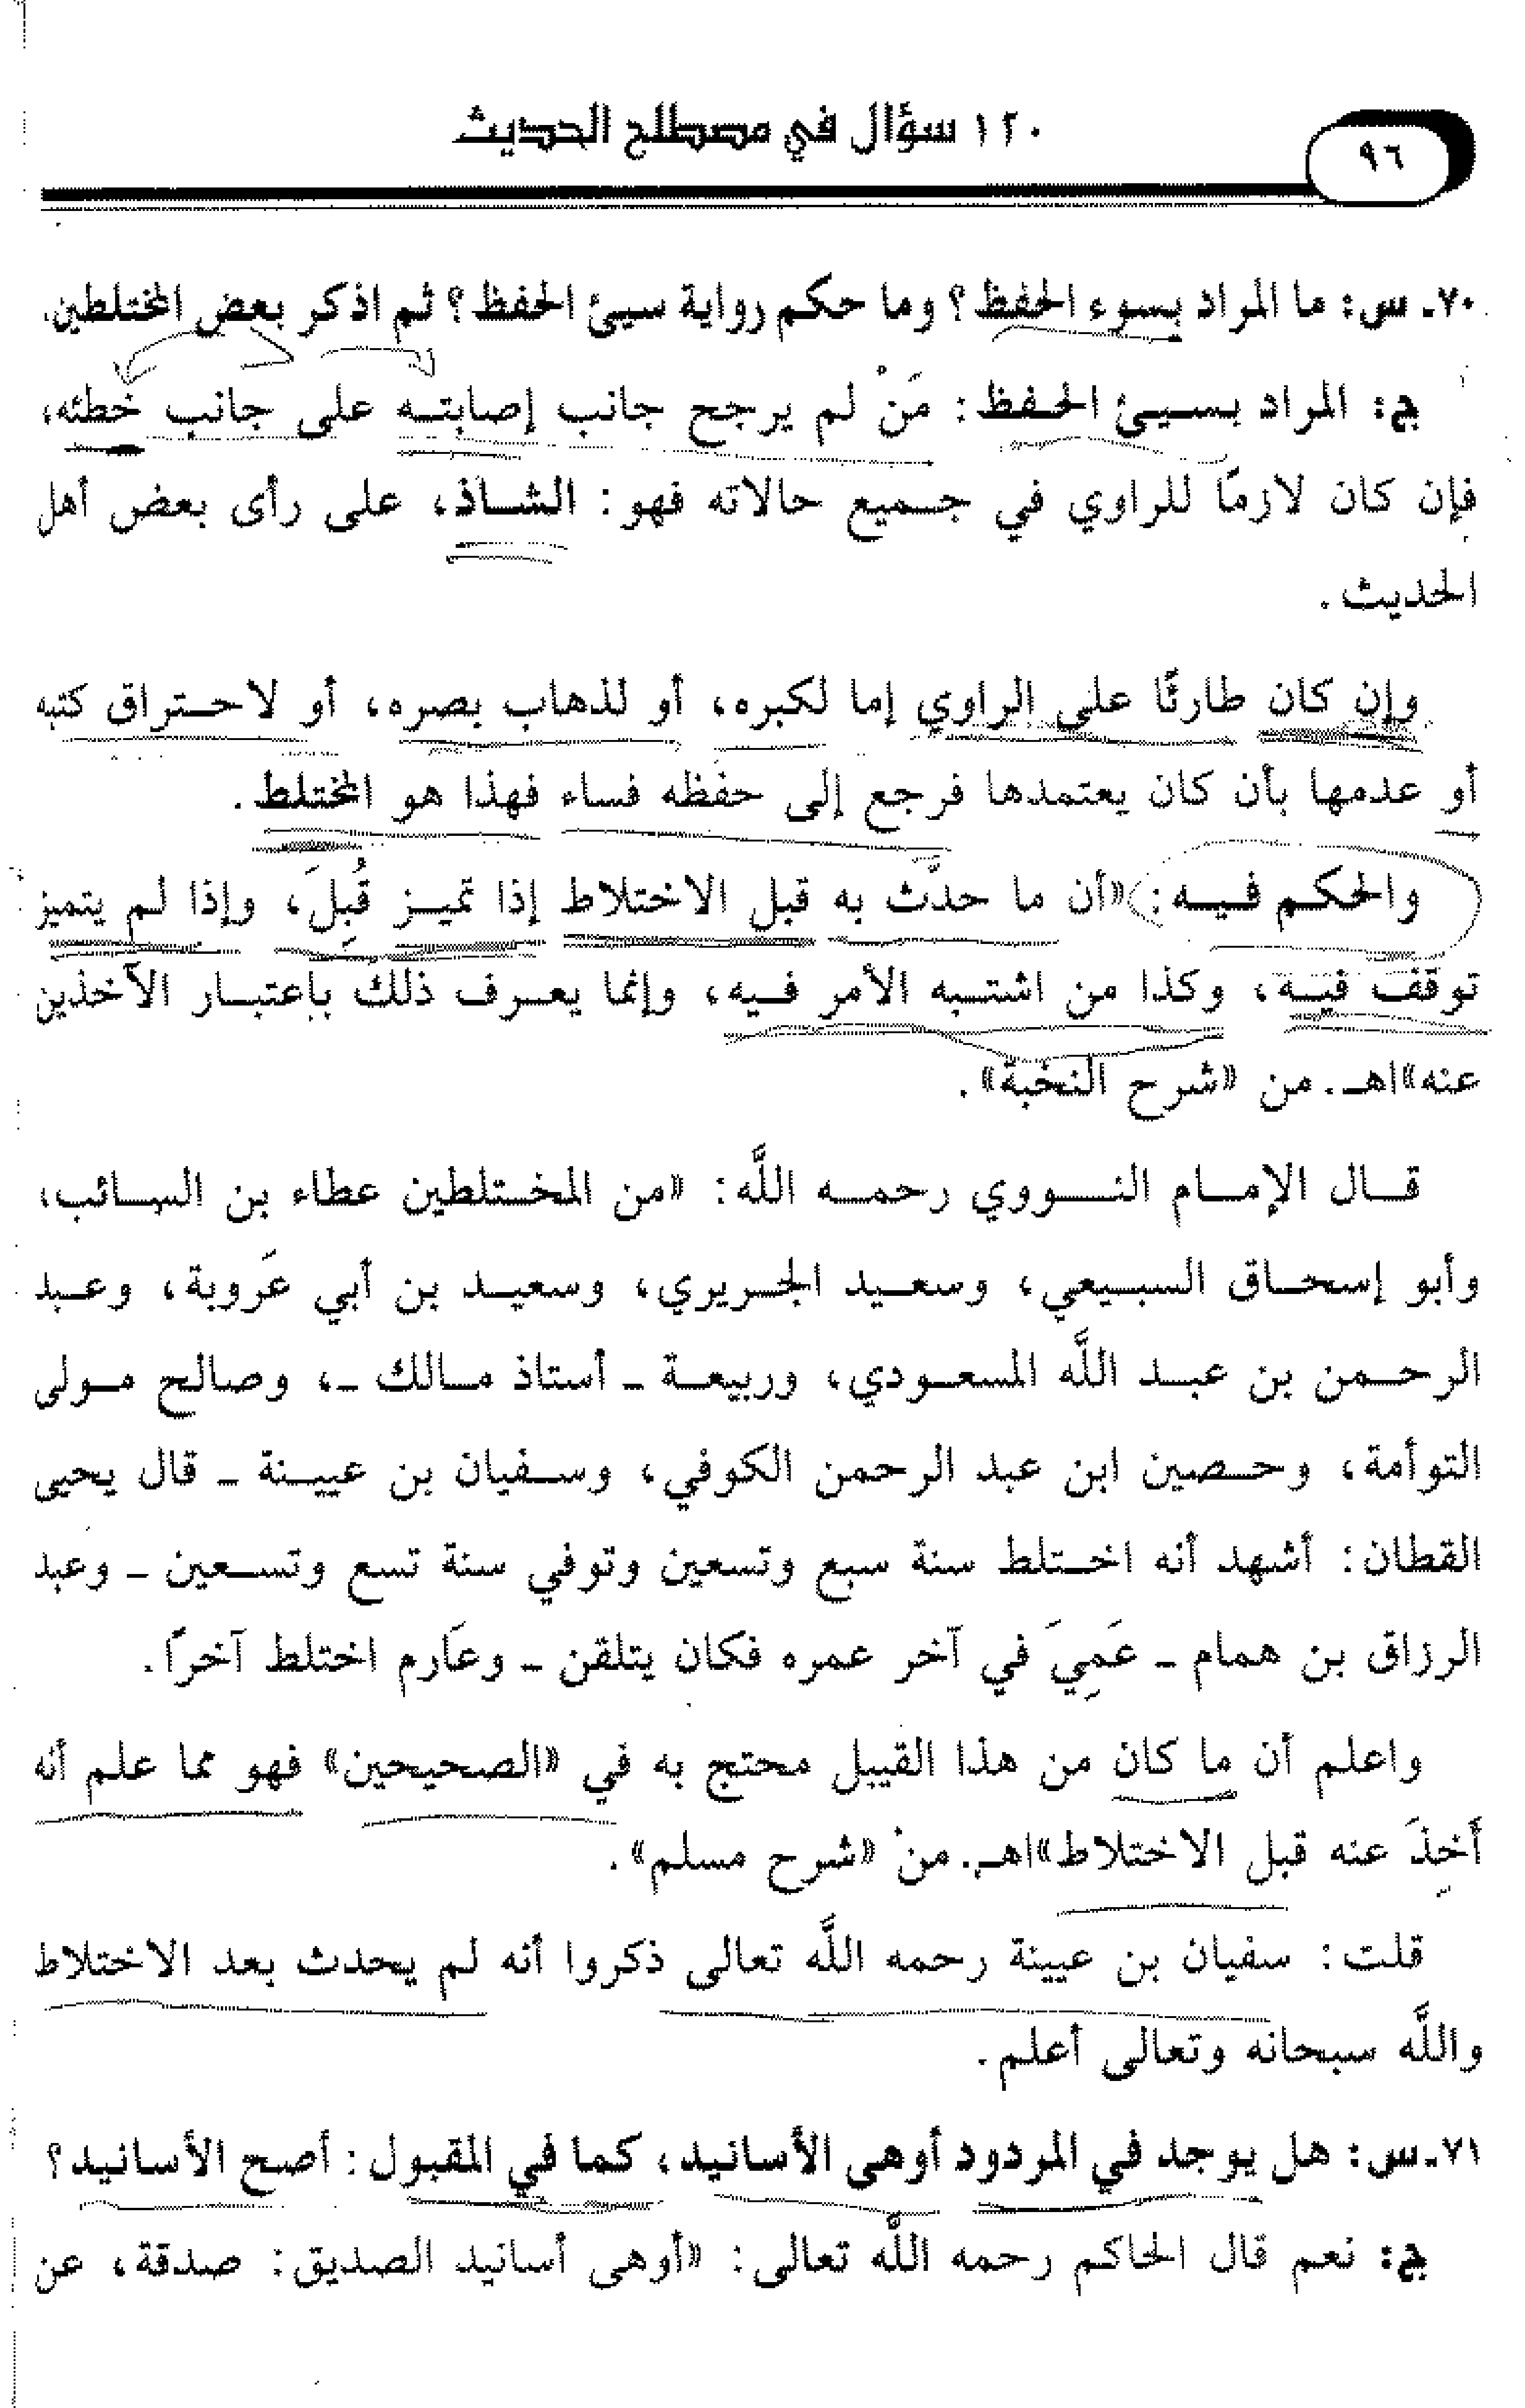 ٩٦
١٢٠ سؤال في مصطلح الحديث
٧٠ـ س: ما المراد بسوء الحفظ؟ وما حكم رواية سيئ الحفظ؟ ثم اذكر بعض المختلطين.
ج: المراد بسيئ الحفظ: مَنْ لم يرجح جانب إصابته على جانب خطئه،
فإن كان لازمًا للراوي في جميع حالاته فهو: الشاذ، على رأى بعض أهل
الحديث.
وإن كان طارئًا على الراوي إما لكبره، أو لذهاب بصره، أو لاحتراق كتبه
أو عدمها بأن كان يعتمدها فرجع إلى حفظه فساء فهذا هو المختلط.
والحكم فيه: «أن ما حدَّث به قبل الاختلاط إذا تميز قُبِلَ، وإذا لم يتميز
توقف فيه، وكذا من اشتبه الأمر فيه، وإنما يعرف ذلك باعتبار الآخذين
عنه»اهـ. من «شرح النخبة».
قال الإمام النووي رحمه اللَّه: «من المختلطين عطاء بن السائب،
وأبو إسحاق السبيعي، وسعيد الجريري، وسعيد بن أبي عَروبة، وعبد
الرحمن بن عبد اللَّه المسعودي، وربيعة ـ أستاذ مالك ـ، وصالح مولى
التوأمة، وحصين ابن عبد الرحمن الكوفي، وسفيان بن عيينة ـ قال يحيى
القطان: أشهد أنه اختلط سنة سبع وتسعين وتوفي سنة تسع وتسعين ـ وعبد
الرزاق بن همام ـ عَمِيَ في آخر عمره فكان يتلقن ـ وعَارم اختلط آخرًا.
واعلم أن ما كان من هذا القبيل محتج به في «الصحيحين» فهو مما علم أنه
أُخِذَ عنه قبل الاختلاط»اهـ. من «شرح مسلم».
قلت: سفيان بن عيينة رحمه اللَّه تعالى ذكروا أنه لم يحدث بعد الاختلاط
واللَّه سبحانه وتعالى أعلم.
٧١ـ س: هل يوجد في المردود أوهى الأسانيد، كما في المقبول: أصح الأسانيد؟
ج: نعم قال الحاكم رحمه اللَّه تعالى: «أوهى أسانيد الصديق: صدقة، عن